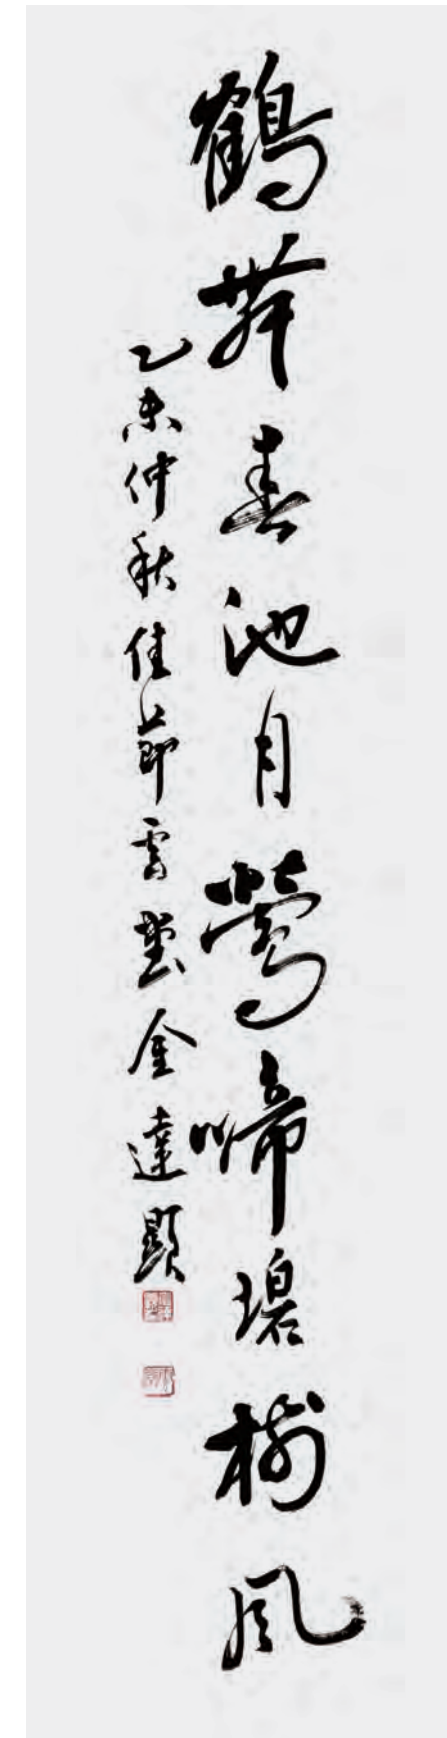 鶴舞春池月鶯啼碧樹風
乙未仲秋佳節雲堂金達顯